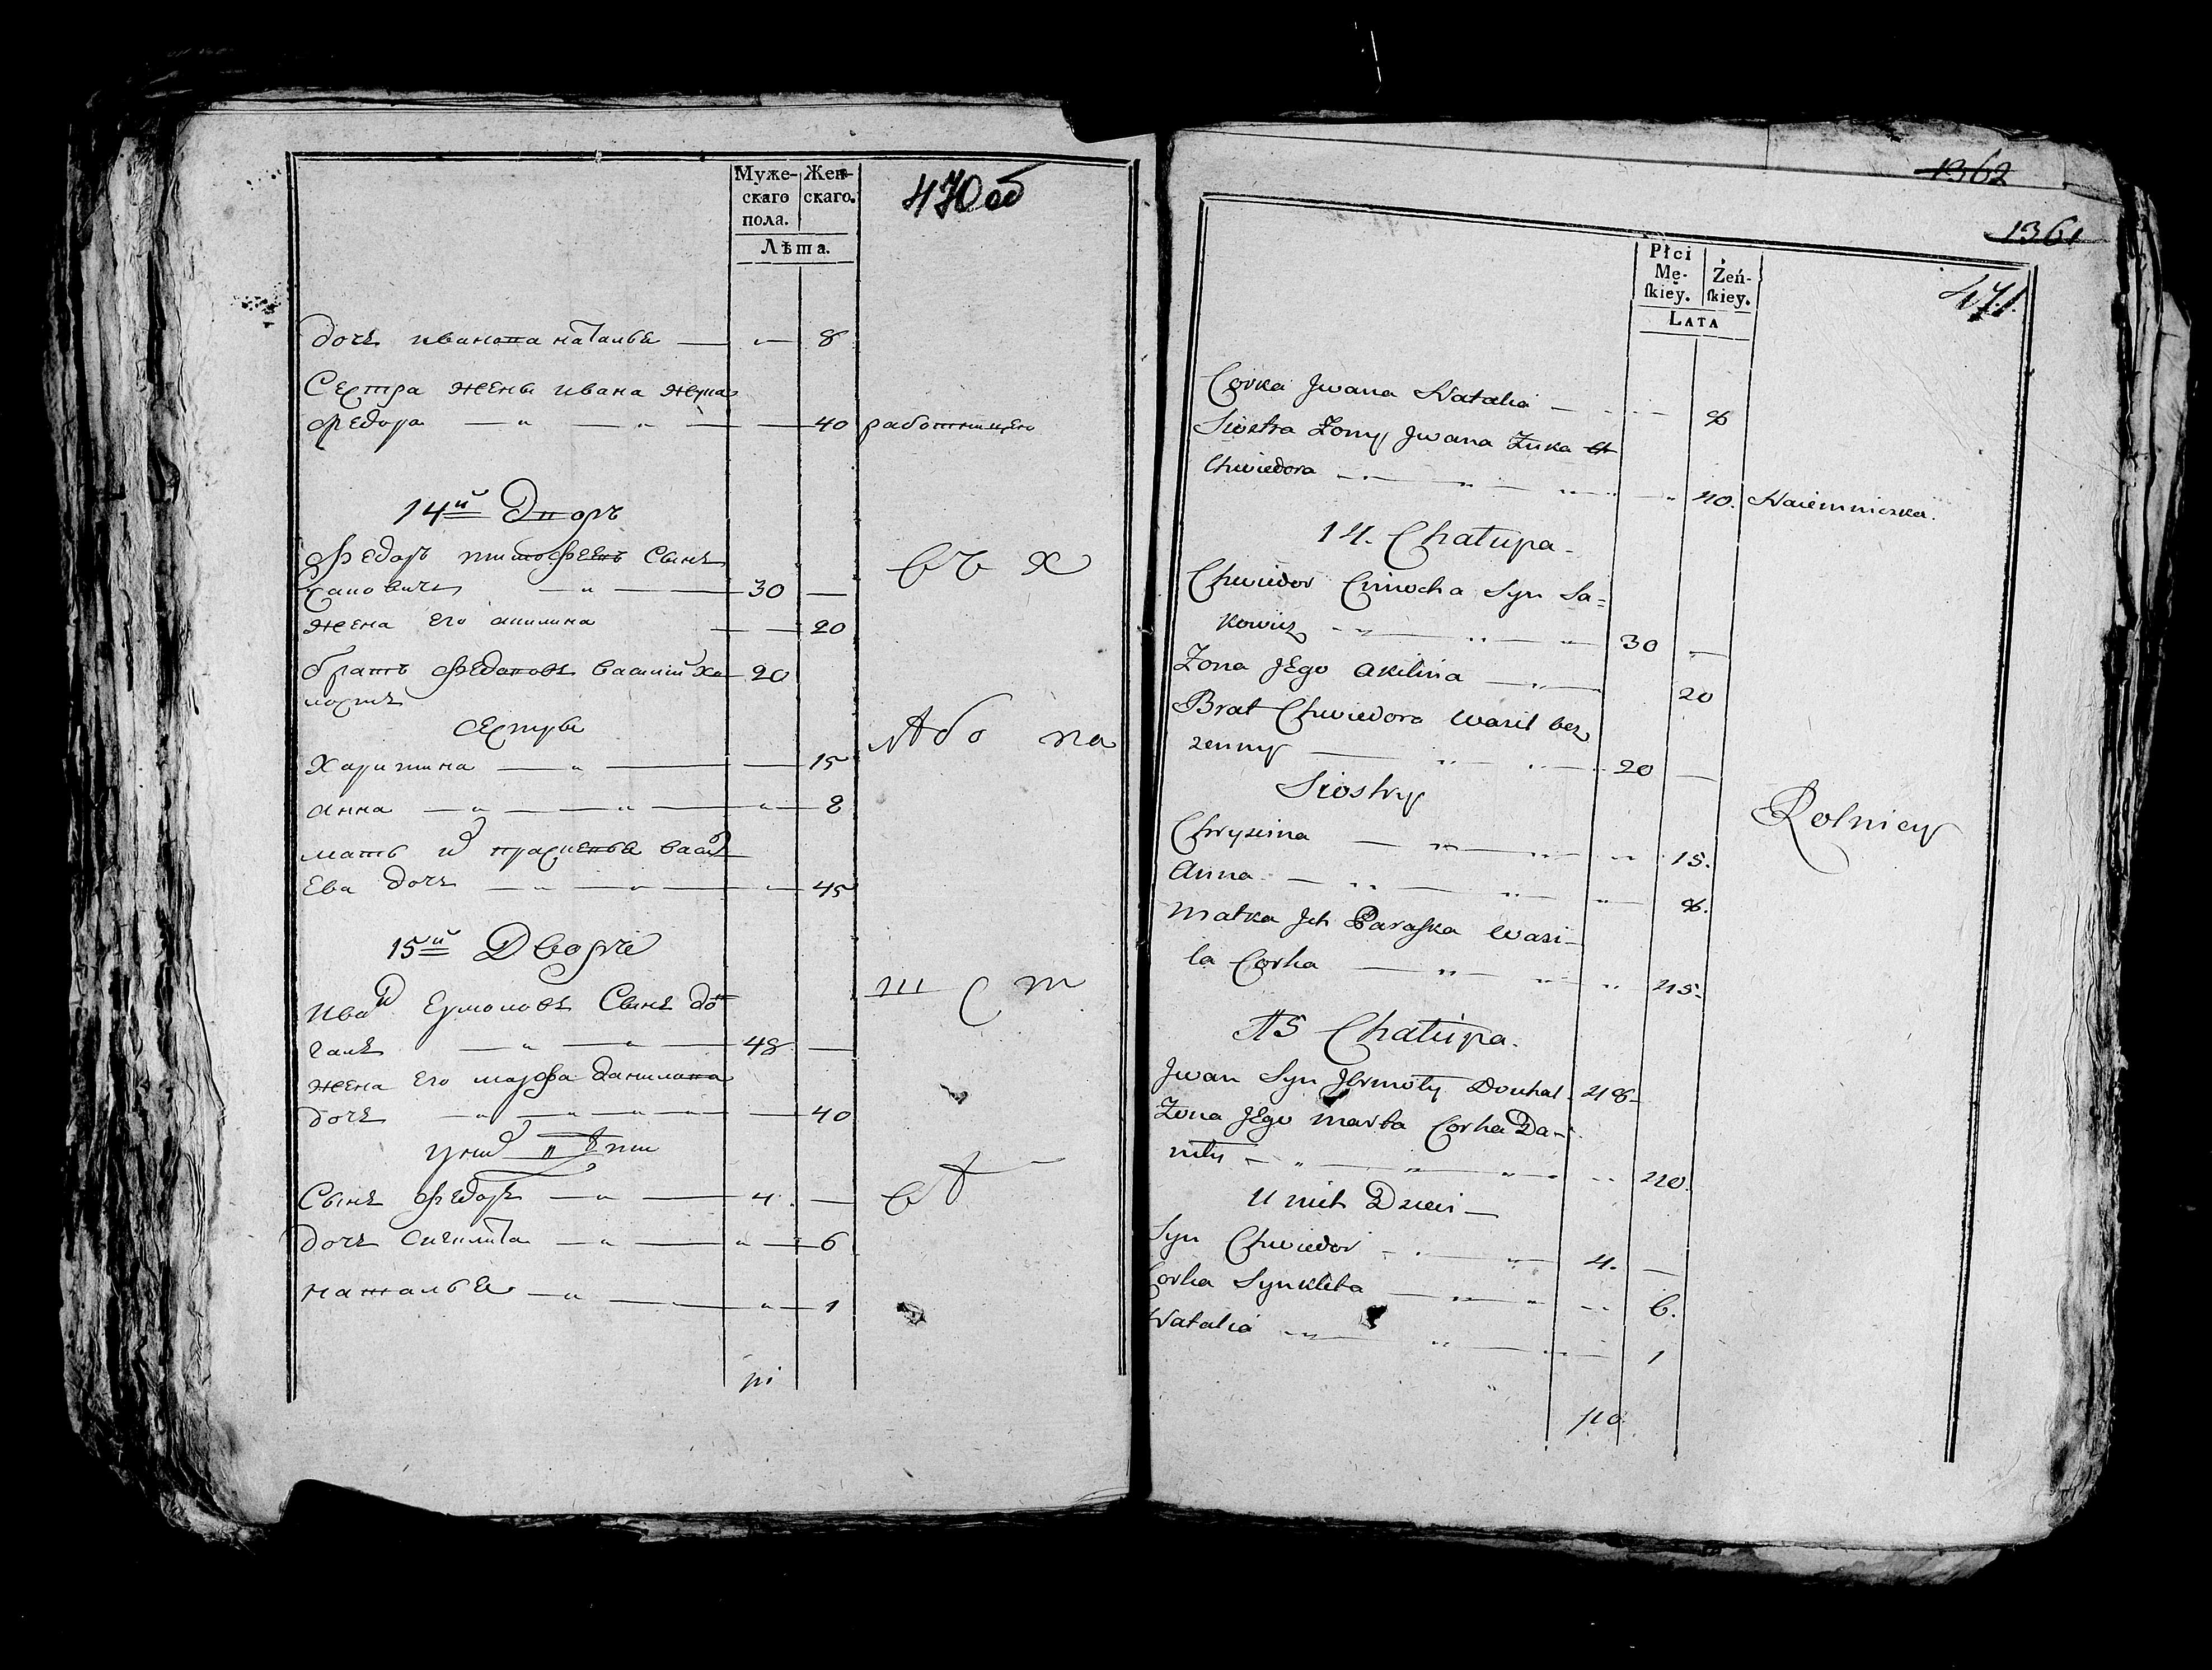 Муже- Жен-
скаго скаго.
пола.
Лѣта.
470 об
дочь иванова наталья — „ — 8
Сестра жены ивана жука
федора — „ — „ — 40 работница
14й Дворъ
Федоръ тимофеевъ Сынъ
Сакович — „ — 30 —
жена его акилина — 20
братъ Федоровъ василий хо 20
лостъ
сестры
Харитина — „ — 15
анна — „ — „ — „ — 8
мать их
Ева дочь — „ — „ — „ — 45
15й Дворъ
Иван Ермоловъ Сынъ до
галь — „ — „ — 48 —
жена его марфа данилова
дочь — „ — „ — „ — 40
у них дѣти
Сынъ федоръ — „ — 4 —
дочь Сиклита — „ — „ — 6
наталья — „ — „ — 1
1362
1361
471.
Płci
Mę- Żeń-
ſkiey. ſkiey.
LATA
Corka Jwana Natalia — 8
Siostra Zony Jwana Zuka
Chwiedora — „ — „ — 40. Naiemniczka.
14. Chałupa
Chwiedor Cimocha Syn Sa=
kowicz — „ — „ 30 —
Zona JEgo Akilina — „ — 20
Brat Chwiedora Wasil bez
zenny — „ — 20 —
Siostry
Rolnicy
Chryzina — „ — „ 15.
Anna — „ — „ — 8.
Matka Jch Paraſka Wasi-
la Corka — „ — „ 45.
15 Chałupa.
Jwan Syn Jermoły Douhal. 48-
Zona JEgo Marta Corka Da-
niły — „ — „ — „ — 40.
U nich Dzieci —
Syn Chwiedor — „ — 4. —
Corka Synkleta — „ — „ 6.
Natalia — „ — „ — 1